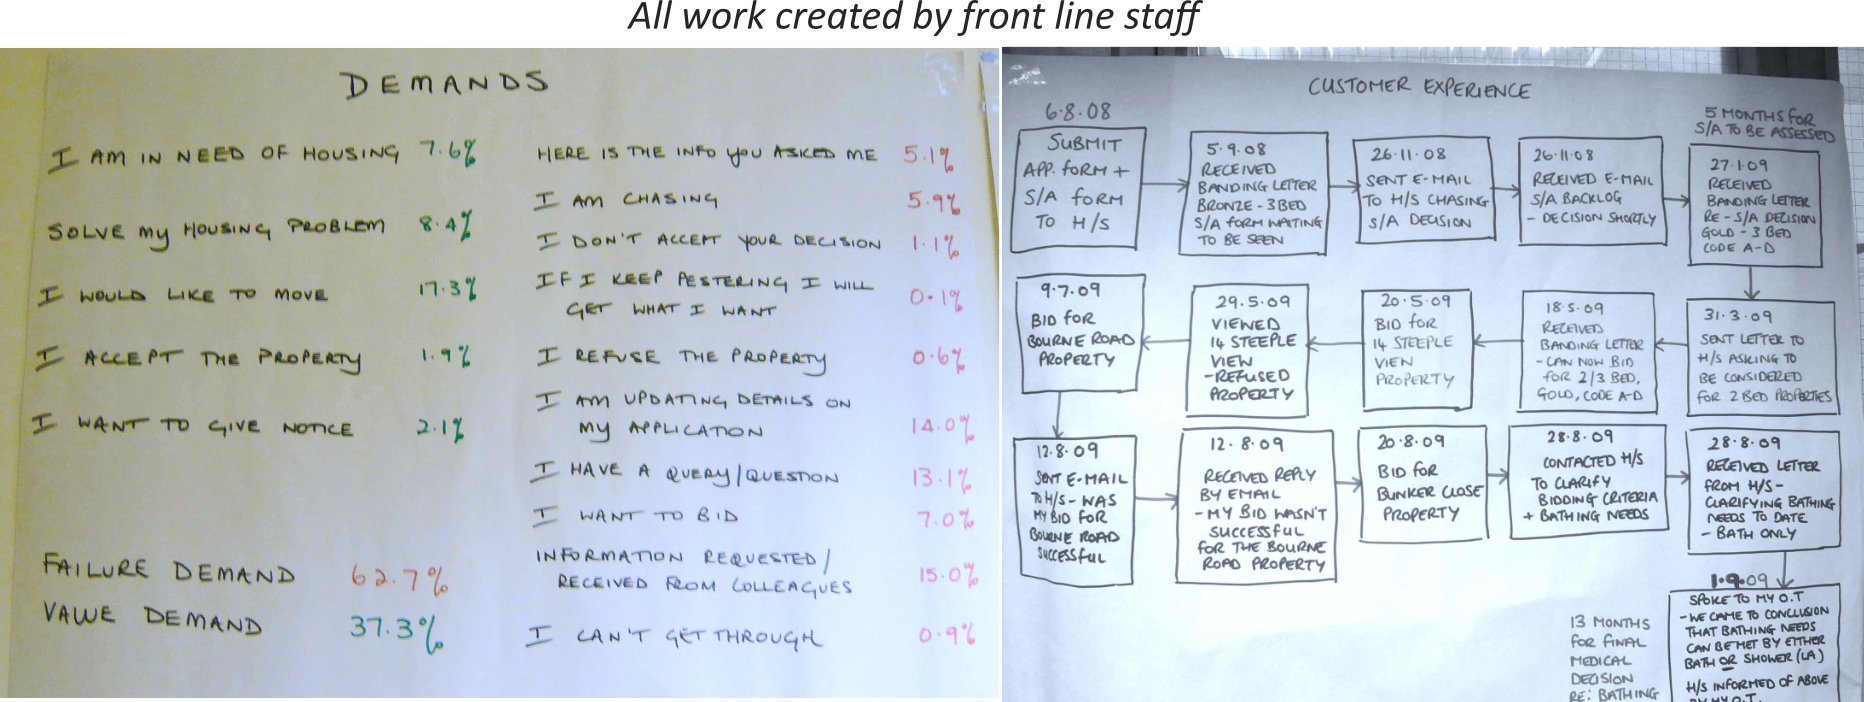 All work created by front line staff
DEMANDS
I AM IN NEED OF HOUSING 7.6%
SOLVE MY HOUSING PROBLEM 8.4%
I WOULD LIKE TO MOVE 17.3%
I ACCEPT THE PROPERTY 1.9%
I WANT TO GIVE NOTICE 2.1%
FAILURE DEMAND 62.7%
VALUE DEMAND 37.3%
HERE IS THE INFO YOU ASKED ME 5.1%
I AM CHASING 5.9%
I DON'T ACCEPT YOUR DECISION 1.1%
IF I KEEP PESTERING I WILL
GET WHAT I WANT 0.1%
I REFUSE THE PROPERTY 0.6%
I AM UPDATING DETAILS ON
MY APPLICATION 14.0%
I HAVE A QUERY/QUESTION 13.1%
I WANT TO BID 7.0%
INFORMATION REQUESTED/
RECEIVED FROM COLLEAGUES 15.0%
I CAN'T GET THROUGH 0.9%
CUSTOMER EXPERIENCE
6.8.08
SUBMIT
APP. FORM +
S/A FORM
TO H/S
5.9.08
RECEIVED
BANDING LETTER
BRONZE - 3 BED
S/A FORM WAITING
TO BE SEEN
26.11.08
SENT E-MAIL
TO H/S CHASING
S/A DECISION
26.11.08
RECEIVED E-MAIL
S/A BACKLOG
- DECISION SHORTLY
5 MONTHS FOR
S/A TO BE ASSESSED
27.1.09
RECEIVED
BANDING LETTER
RE - S/A DECISION
GOLD - 3 BED
CODE A-D
31.3.09
SENT LETTER TO
H/S ASKING TO
BE CONSIDERED
FOR 2 BED PROPERTIES
18.5.09
RECEIVED
BANDING LETTER
- CAN NOW BID
FOR 2/3 BED,
GOLD, CODE A-D
20.5.09
BID FOR
14 STEEPLE
VIEW
PROPERTY
29.5.09
VIEWED
14 STEEPLE
VIEW
- REFUSED
PROPERTY
9.7.09
BID FOR
BOURNE ROAD
PROPERTY
12.8.09
SENT E-MAIL
TO H/S - WAS
MY BID FOR
BOURNE ROAD
SUCCESSFUL
12.8.09
RECEIVED REPLY
BY EMAIL
- MY BID WASN'T
SUCCESSFUL
FOR THE BOURNE
ROAD PROPERTY
20.8.09
BID FOR
BUNKER CLOSE
PROPERTY
28.8.09
CONTACTED H/S
TO CLARIFY
BIDDING CRITERIA
+ BATHING NEEDS
28.8.09
RECEIVED LETTER
FROM H/S -
CLARIFYING BATHING
NEEDS TO DATE
- BATH ONLY
1.9.09
SPOKE TO MY O.T
- WE CAME TO CONCLUSION
THAT BATHING NEEDS
CAN BE MET BY EITHER
BATH OR SHOWER (LA)
H/S INFORMED OF ABOVE
BY MY O.T.
13 MONTHS
FOR FINAL
MEDICAL
DECISION
RE: BATHING